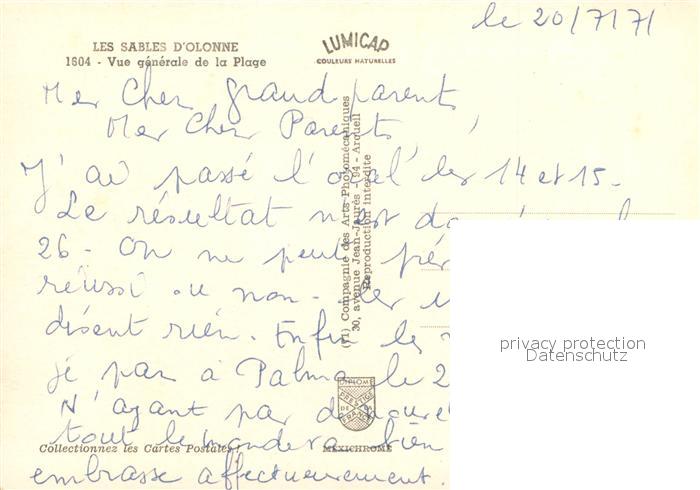 le 20/7/71
LES SABLES D'OLONNE
1604 - Vue générale de la Plage
LUMICAP
COULEURS NATURELLES
Mes Cher grand-parents,
Mes Cher Parents,
J'ai passé l'oral les 14 et 15.
Le résultat n'est
26 - On ne peut
réussi ou non.
disent rien. Enfin les
je pars à Palma le 2
N'ayant pas de
tout le monde va bien
embrasse affectueusement.
(71) Compagnie des Arts Photomécaniques
30, avenue Jean-Jaurès - 94 - Arcueil
Reproduction interdite
DIPLOME
PRESTIGE
DE
FRANCE
Collectionnez les Cartes Postales
MEXICHROME
privacy protection
Datenschutz